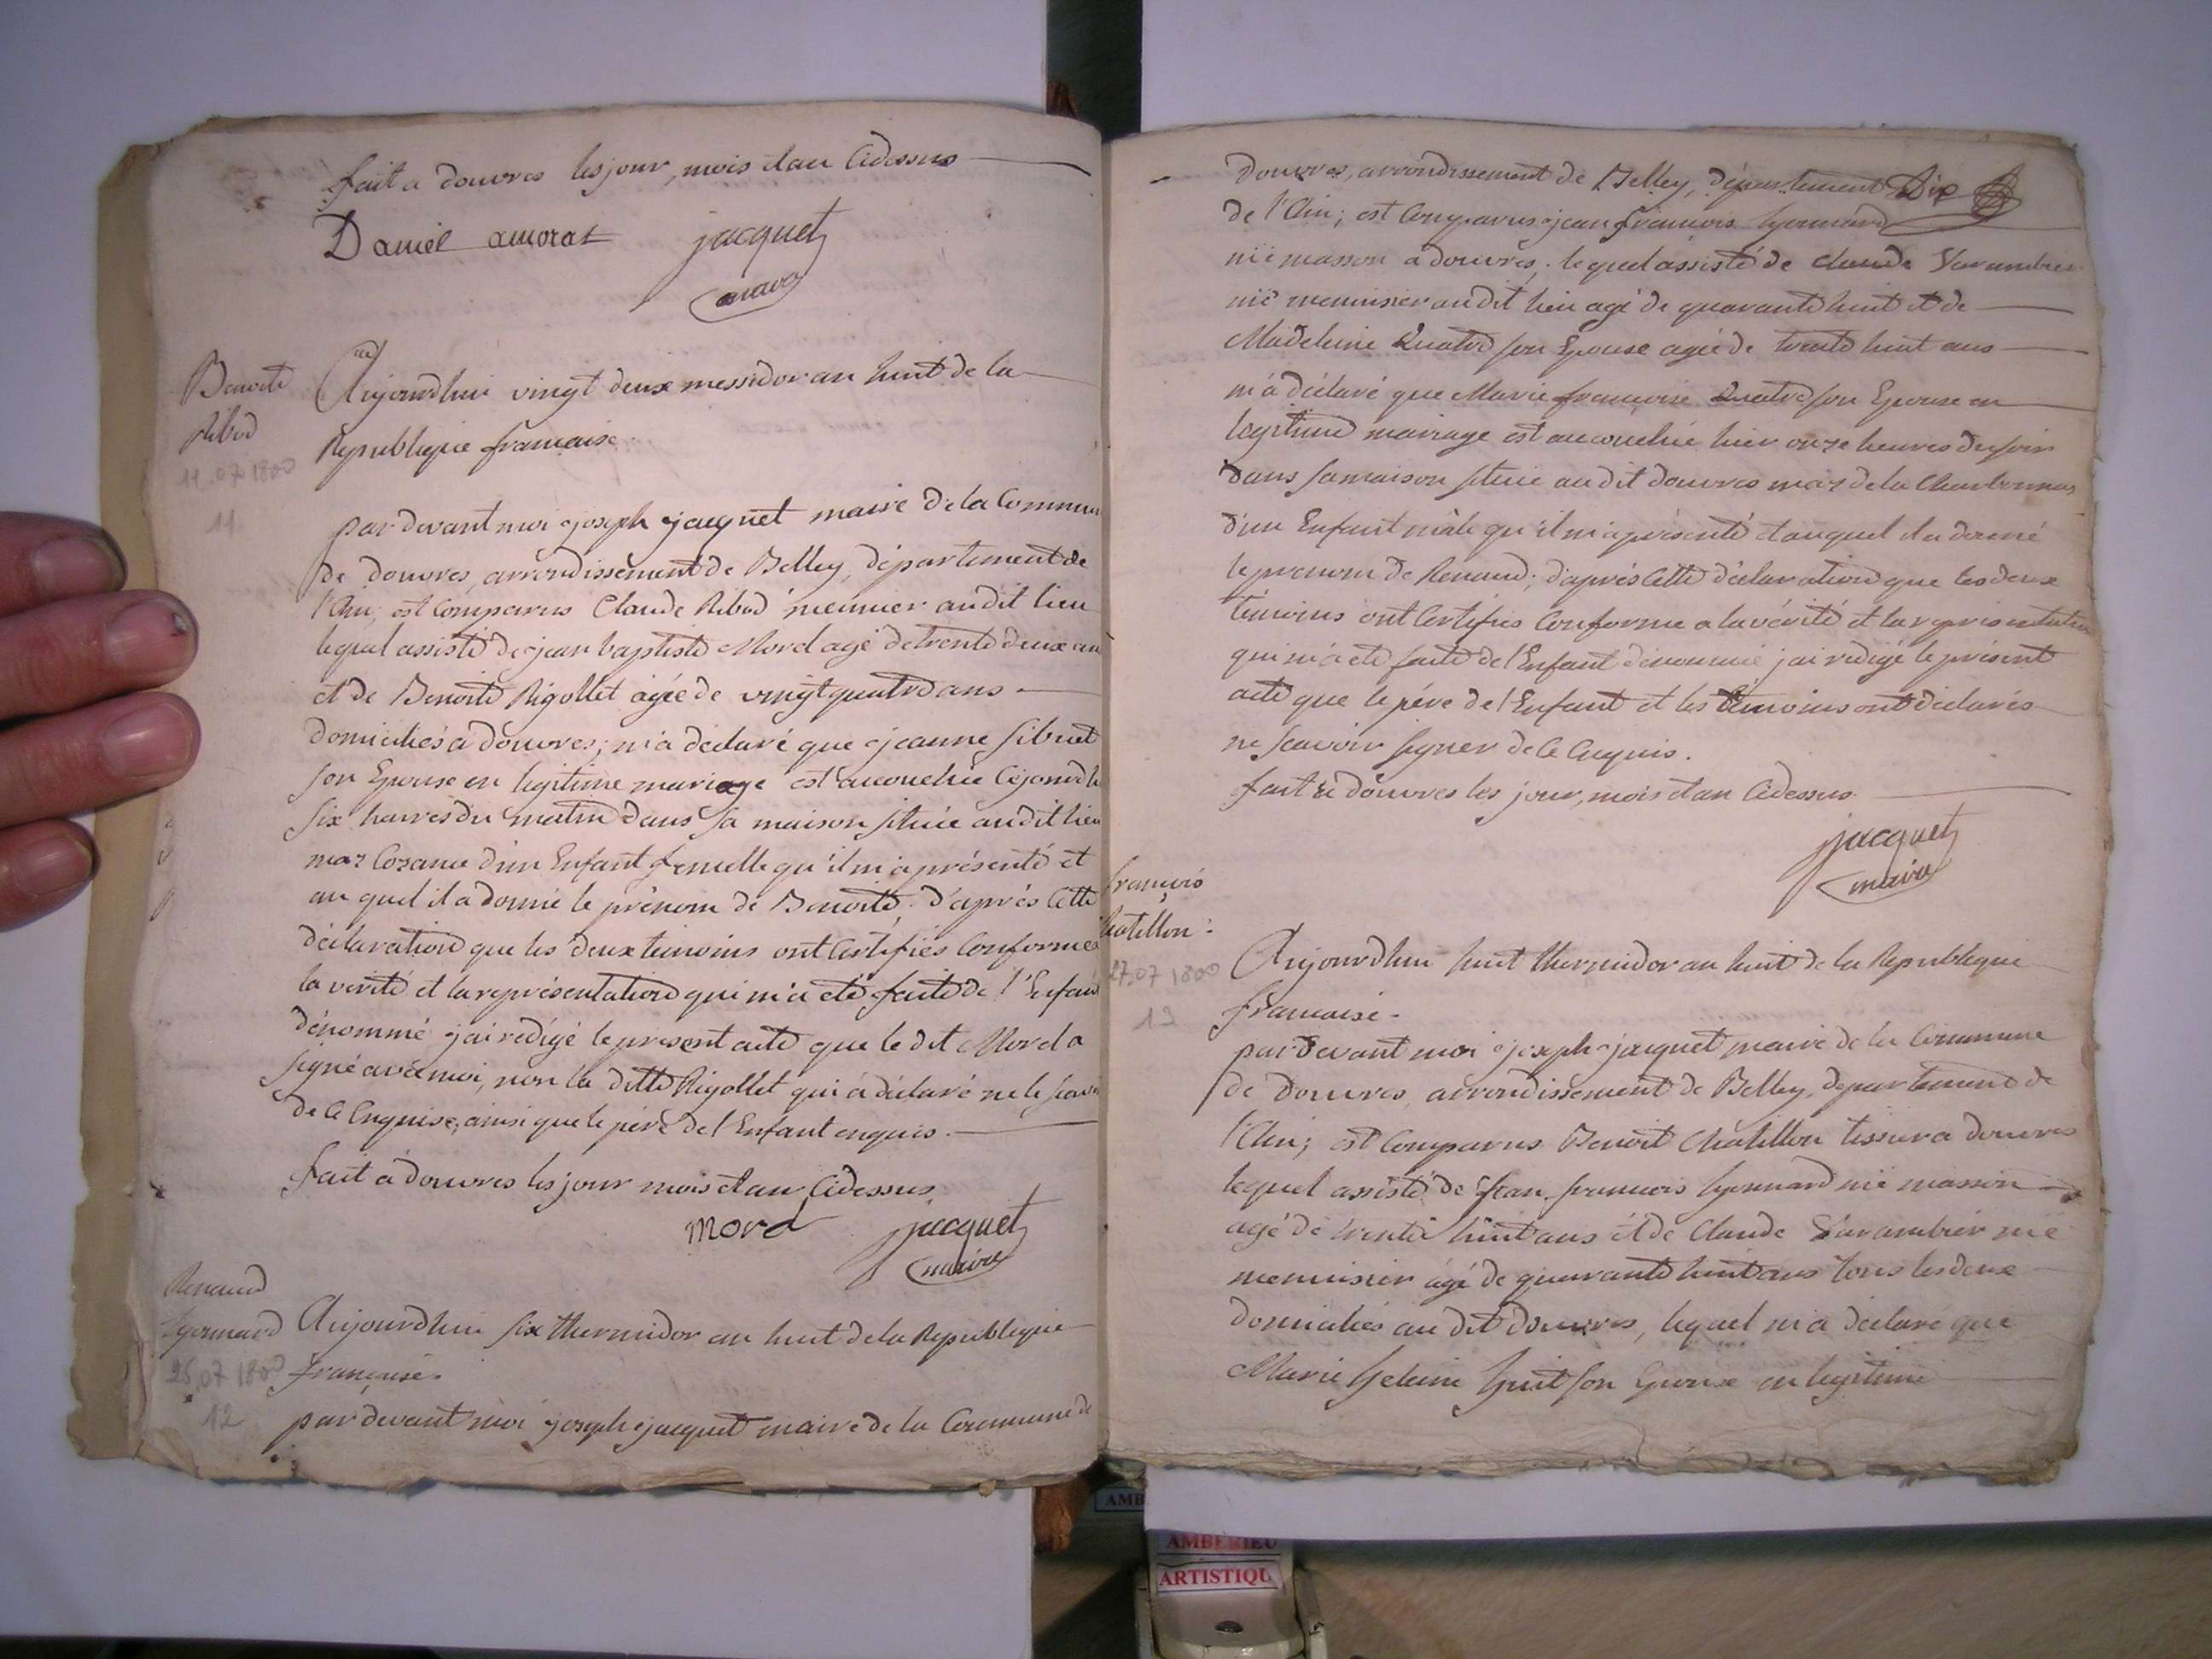 fait a douvres les jour, mois et an Cidessus
Daniel amorat jacquet
maire
Benoite
Ribod
11.07 1800
11
Aujourdhui vingt deux messidor an huit de la
Republique francaise
par devant moi joseph jacquet maire de la Commune
de douvres, arrondissement de Belley, département de
l'Ain, est Comparus Claude Ribod meunier audit lieu
lequel assisté de jean baptiste Morel agé de trente deux ans
et de Benoite Rigollet agée de vingt quatre ans
domiciliés a douvres; m'a déclaré que jeanne sibuet
son Epouse en legitime mariage est accouchée Cejourdhui
six heures du matin dans sa maison située audit lieu
mas Cozance d'un Enfant femelle qu'il m'a présenté et
au quel il a donné le prénom de Benoite; d'après Cette
déclaration que les deux temoins ont Certifiés Conforme a
la verité et la représentation qui m'a eté faite de l'Enfant
dénommé j'ai redigé le present acte que le dit Morel a
signé avec moi, non la ditte Rigollet qui a déclaré ne le scavoir
de Ce Enquise, ainsi que le père de l'Enfant enquis.
fait a douvres les jour mois et an Cidessus
Morel jacquet
maire
Renaud
hyvernard
25.07 1800
12
Aujourdhui six thermidor an huit de la Republique
française.
par devant moi joseph jacquet maire de la Commune de
douvres, arrondissement de Belley, département Dix
de l'Ain; est Comparus jean francois
masson a douvres; lequel assisté de Claude
menuisier audit lieu agé de quarante huit et de
Madeleine son Epouse agée de trente huit ans
m'a déclaré que Marie francoise son Epouse en
legitime mariage est accouchée hier onze heures du soir
dans sa maison située audit douvres mas de la
d'un Enfant mâle qu'il m'a présenté et auquel il a donné
le prenom de Renaud; d'après Cette déclaration que les deux
témoins ont Certifiés Conforme a la vérité et la représentation
qui m'a eté faite de l'Enfant dénommé j'ai redigé le présent
acte que le père de l'Enfant et les temoins ont déclarés
ne scavoir signer de Ce Enquis.
fait a douvres les jour, mois et an Cidessus
jacquet
maire
françois
hatillon
27.07 1800
13
Aujourdhui huit thermidor an huit de la Republique
francaise.
par devant moi joseph jacquet maire de la Commune
de douvres, arrondissement de Belley, departement de
l'Ain; est Comparus Benoit Chatillon tissier a douvres
lequel assisté de jean francois masson
agé de trente huit ans et de Claude
menuisier agé de quarante huit ans tous les deux
domiciliés au dit douvres, lequel m'a déclaré que
Marie son Epouse en legitime
AMB
AMBERIEU
ARTISTIQU